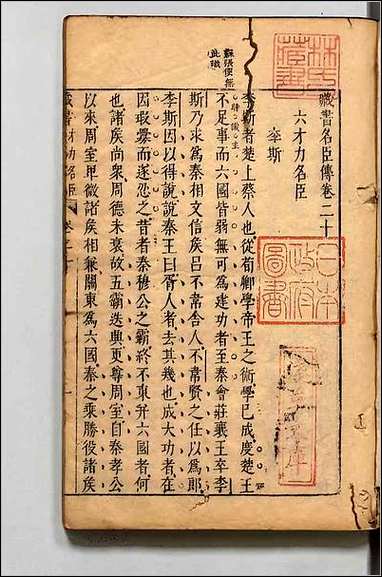 藏書名臣傳卷二十
六才力名臣
李斯
李斯者楚上蔡人也從荀卿學帝王之術學已成度楚王
不足事而六國皆弱無可為建功者至秦會莊襄王卒李
斯乃求為秦相文信侯呂不韋舍人不韋賢之任以為郎
李斯因以得說說秦王曰胥人者去其幾也成大功者在
因瑕釁而遂忍之昔者秦穆公之霸終不東并六國者何
也諸侯尚眾周德未衰故五霸迭興更尊周室自秦孝公
以來周室卑微諸侯相兼關東為六國秦之乘勝役諸侯
林氏藏書
日本政府圖書